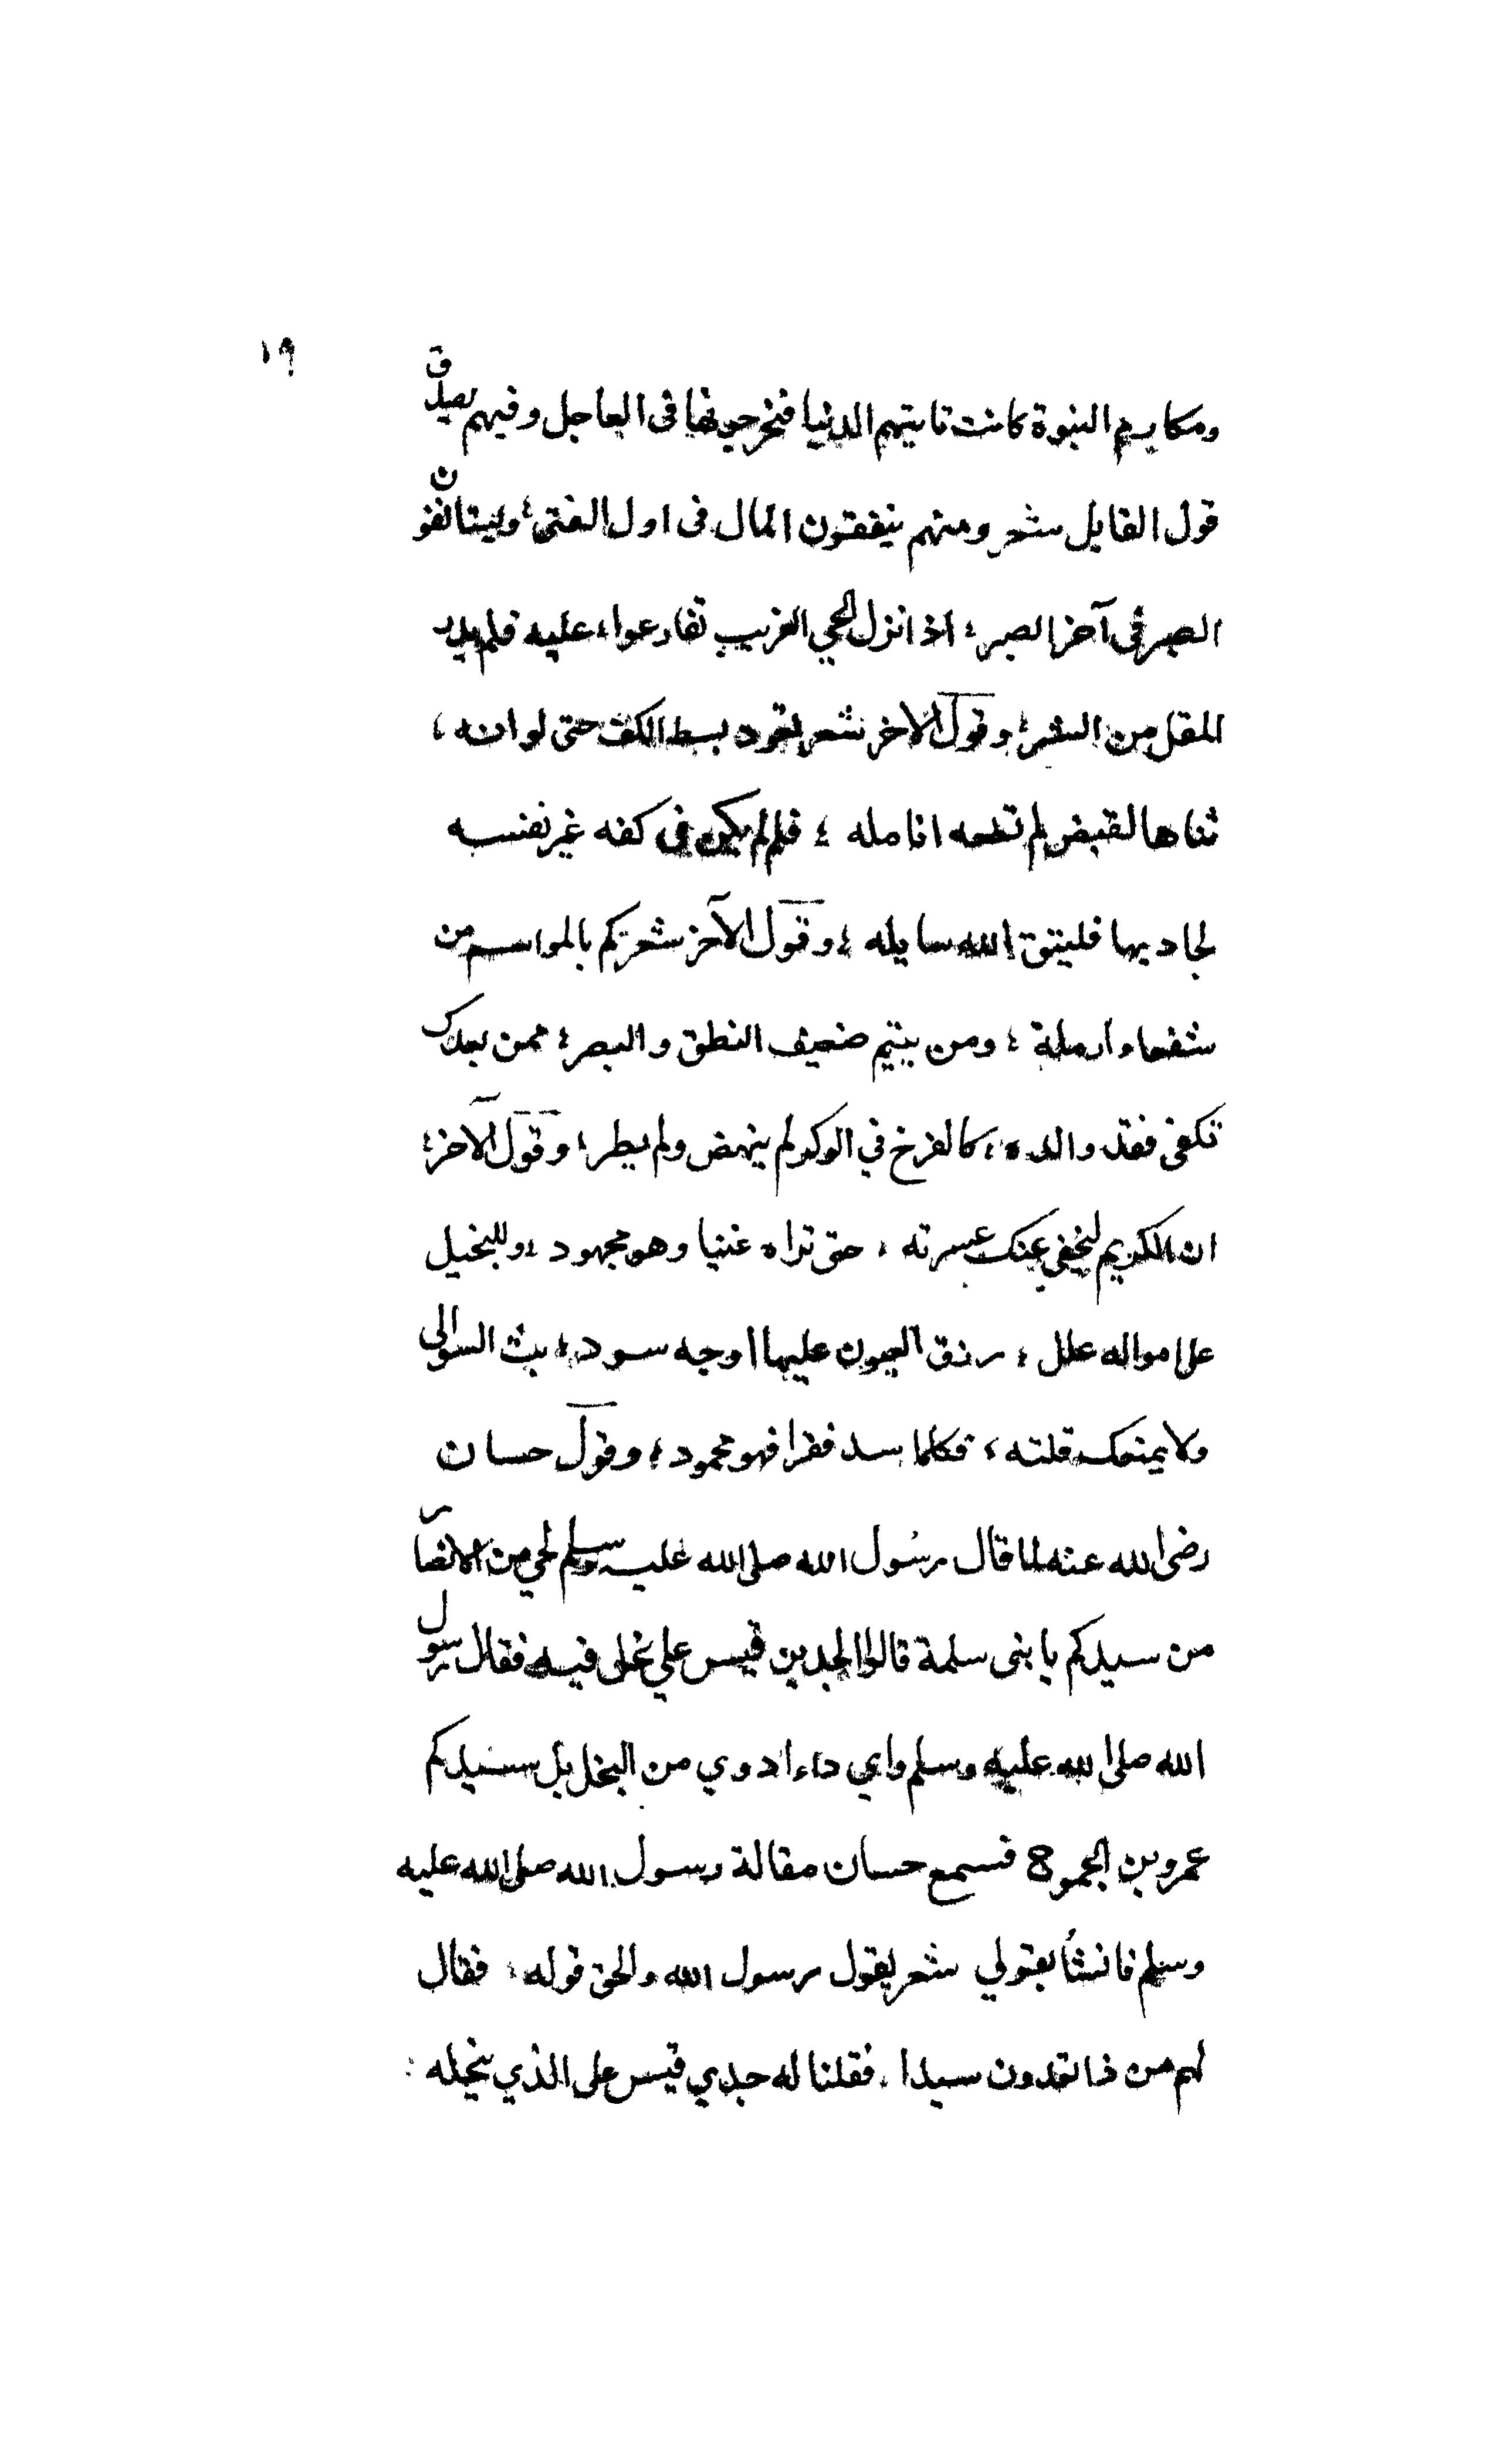 ١٩
ومكارم النبوة كانت تاتيهم الدنيا فيخرجونها فى العاجل وفيهم يصدق
قول القايل شعر ومنهم ينفقون المال فى اول الغنى، ويستانفون
الصبر فى آخر الصبر، اذا نزل الحي الغريب تقارعوا، عليه فلم يدر
المقل من المثر، وقول الاخر شعر تعود بسط الكف حتى لو انه،
ثناها لقبض لم تطعه انامله، فلو لم يكن فى كفه غير نفسه
لجاد بها فليتق الله سايله، وقول الآخر شعر كم بالمواسم من
شعثاء ارملة، ومن يتيم ضعيف النطق والبصر، ممن يعدك
تكفى فقد والده، كالفرخ في الوكر لم ينهض ولم يطر، وقول الآخر،
ان الكريم ليخفي عنك عسرته، حتى تراه غنيا وهو مجهود، وللبخيل
على امواله علل، زرق العيون عليها اوجه سود، بث النوالى
ولا يمنعك قلته، فكلما سد فقرا فهو محمود، وقول حسان
رضى الله عنه لما قال رسول الله صلى الله عليه وسلم لحي من الانصار
من سيدكم يا بنى سلمة قالوا الجد بن قيس علي بخل فيه فقال رسول
الله صلى الله عليه وسلم واي داء ادوي من البخل بل سيدكم
عمرو بن الجموح فسمع حسان مقالة رسول الله صلى الله عليه
وسلم فانشأ يقولي شعر يقول رسول الله والحق قوله، فقال
لهم من ذا تعدون سيدا، فقلنا له جدي قيس على الذي يبخله،